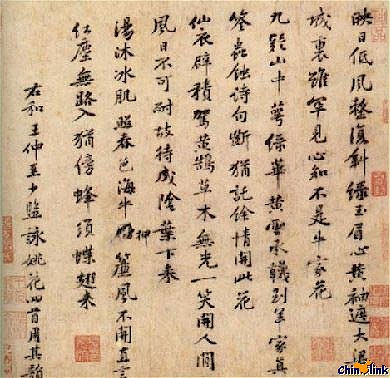 映日低風整復斜綠玉眉心黃袖遮大梁
城裏雖罕見心知不是牛家花
九疑山中萼綠華黃雲承韈到羊家真
筌蟲蝕詩句斷猶託餘情開此花
仙衣襞積駕黃鵠草木無光一笑開人間
風日不可耐故待成陰葉下来
湯沐冰肌照春色海牛押簾風不開直言
紅塵無路入猶傍蜂須蝶翅来
右和王仲至少監詠姚花四首用其韻